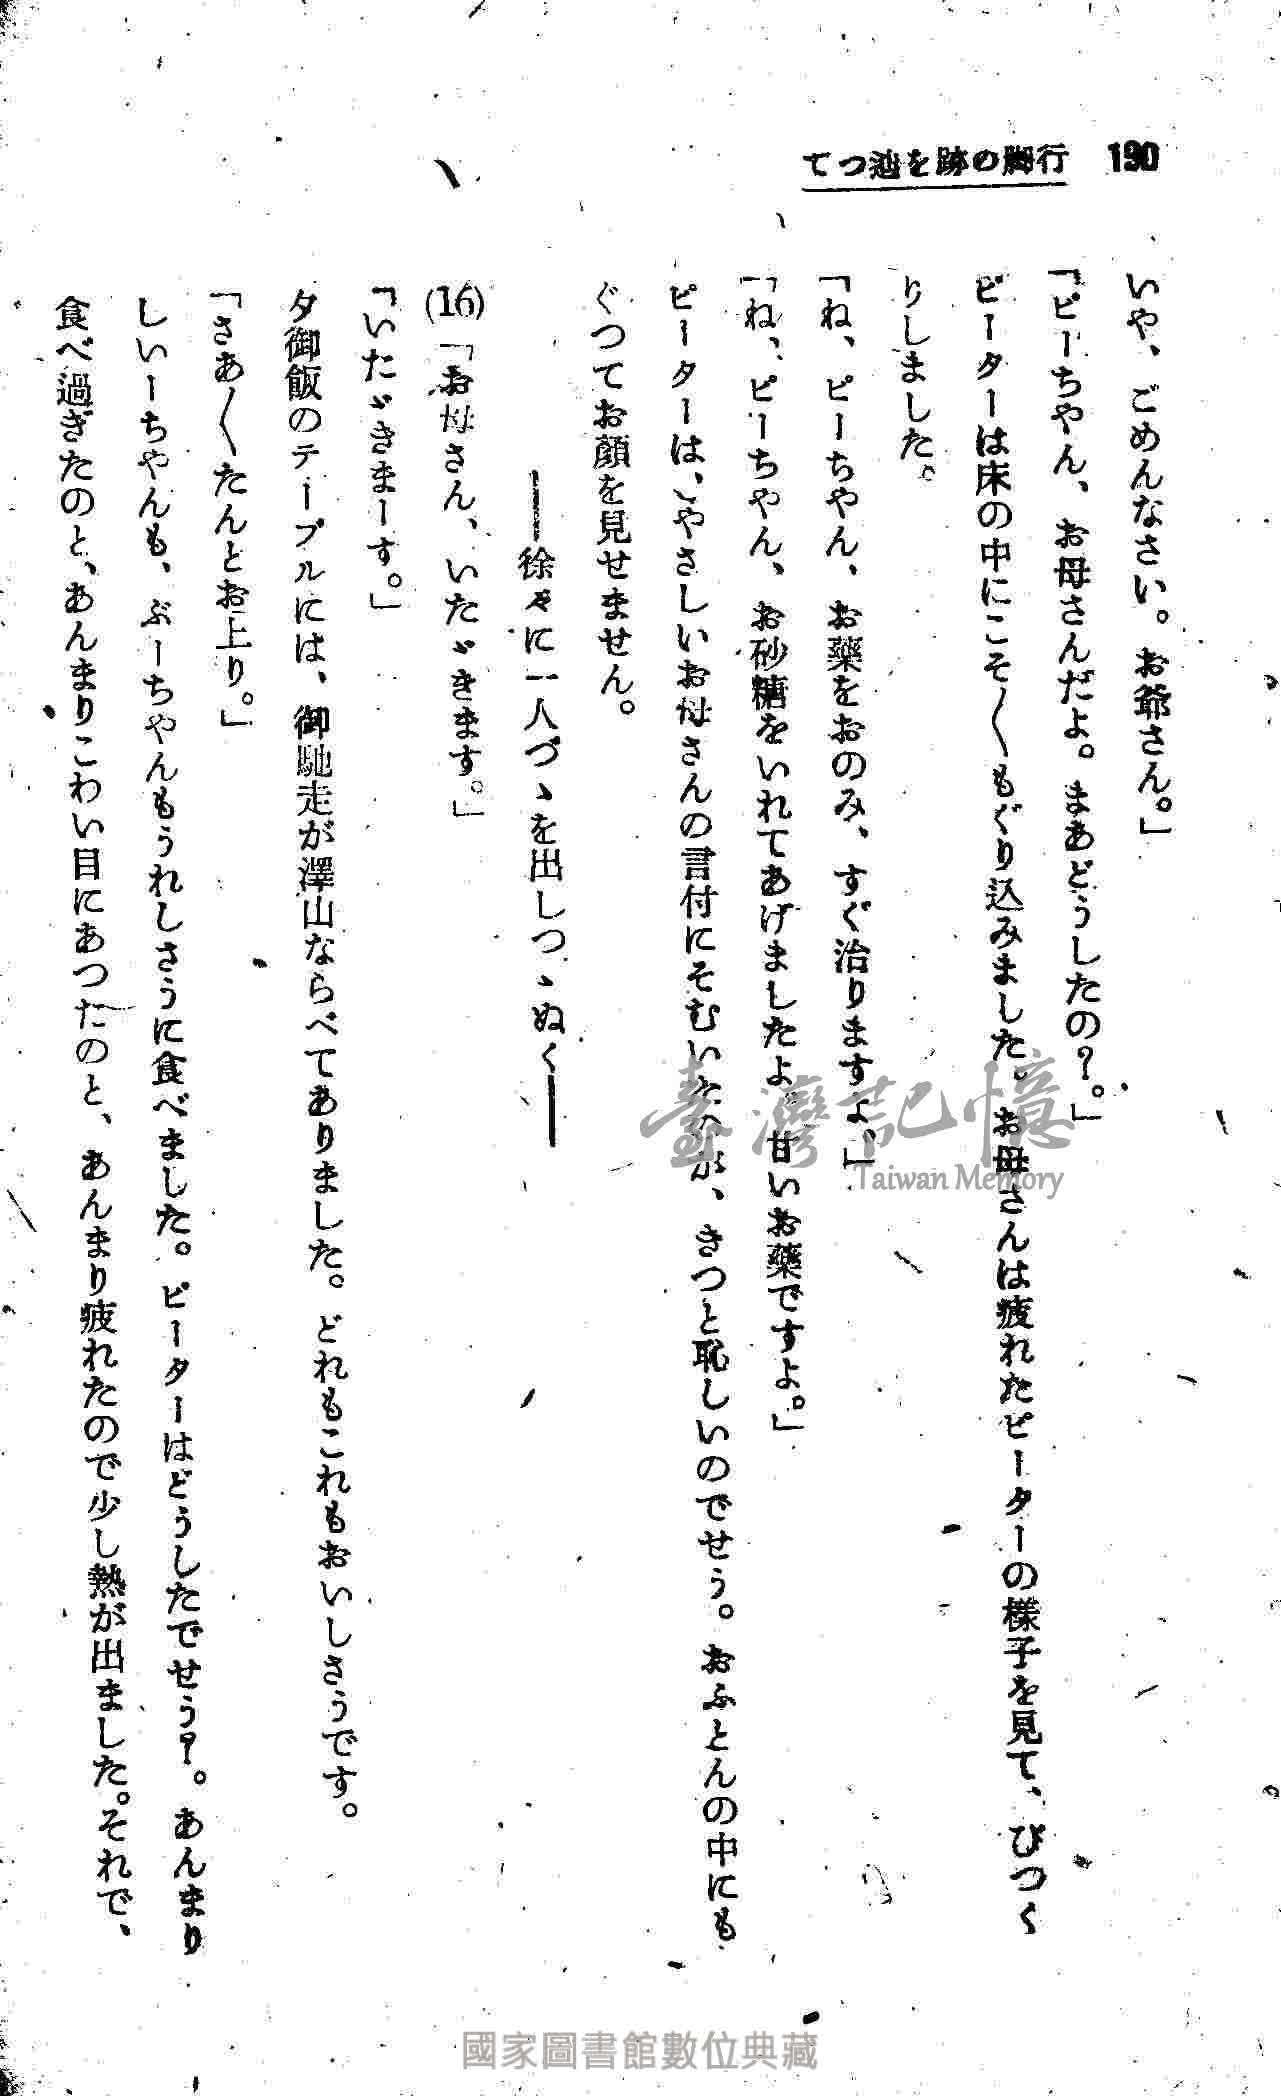 190 行脚の跡を辿つて
いや、ごめんなさい。お爺さん。」
「ピーちやん、お母さんだよ。まあどうしたの？。」
ピーターは床の中にこそ〱もぐり込みました。お母さんは疲れたピーターの様子を見て、びつく
りしました。
「ね、ピーちやん、お藥をおのみ、すぐ治りますよ、」
「ね、ピーちやん、お砂糖をいれてあげましたよ。甘いお藥ですよ。」
ピーターは、やさしいお母さんの言付にそむいたのが、きつと恥しいのでせう。おふとんの中にも
ぐつてお顔を見せません。
――徐々に一人づゝを出しつゝぬく――
(16)「お母さん、いたゞきます。」
「いたゞきまーす。」
夕御飯のテーブルには、御馳走が澤山ならべてありました。どれもこれもおいしさうです。
「さあ〱たんとお上り。」
しいーちやんも、ぶーちやんもうれしさうに食べました。ピーターはどうしたでせう？。あんまり
食べ過ぎたのと、あんまりこわい目にあつたのと、あんまり疲れたので少し熱が出ました。それで、
臺灣記憶
Taiwan Memory
國家圖書館數位典藏